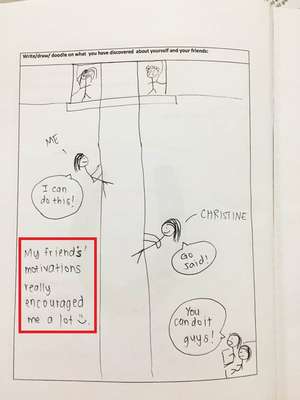 Write/draw/ doodle on what you have discovered about yourself and your friends:
ME
I can
do this!
CHRISTINE
Go
Said!
My friends'
motivations
really
encouraged
me a lot
You
can do it
guys!